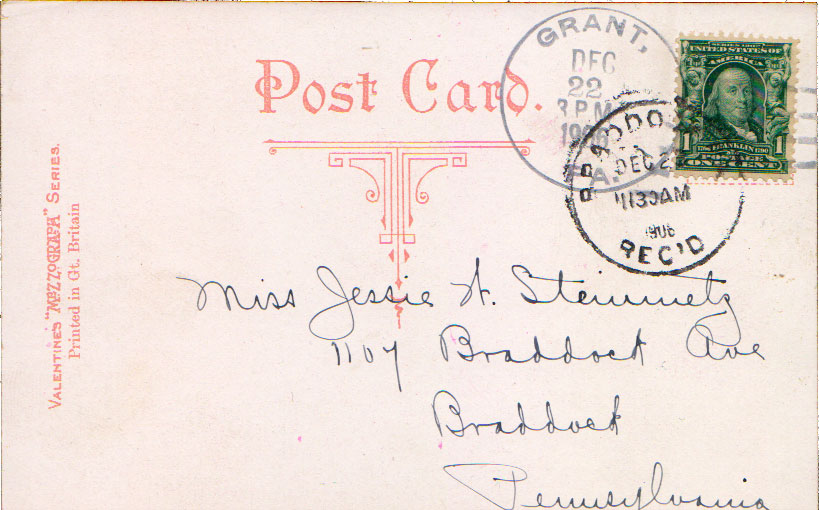 Post Card.
GRANT,
DEC
22
3 P.M.
1906
PA.
SERIES 1902
UNITED STATES OF
AMERICA
1 1
1706 FRANKLIN 1790
POSTAGE
ONE CENT
BRADDO
DEC 2
1130AM
1906
REC'D
VALENTINE'S "MEZZOGRAPH" SERIES.
Printed in Gt. Britain
Miss Jessie H. Steinmetz
1107 Braddock Ave
Braddock
Pennsylvania